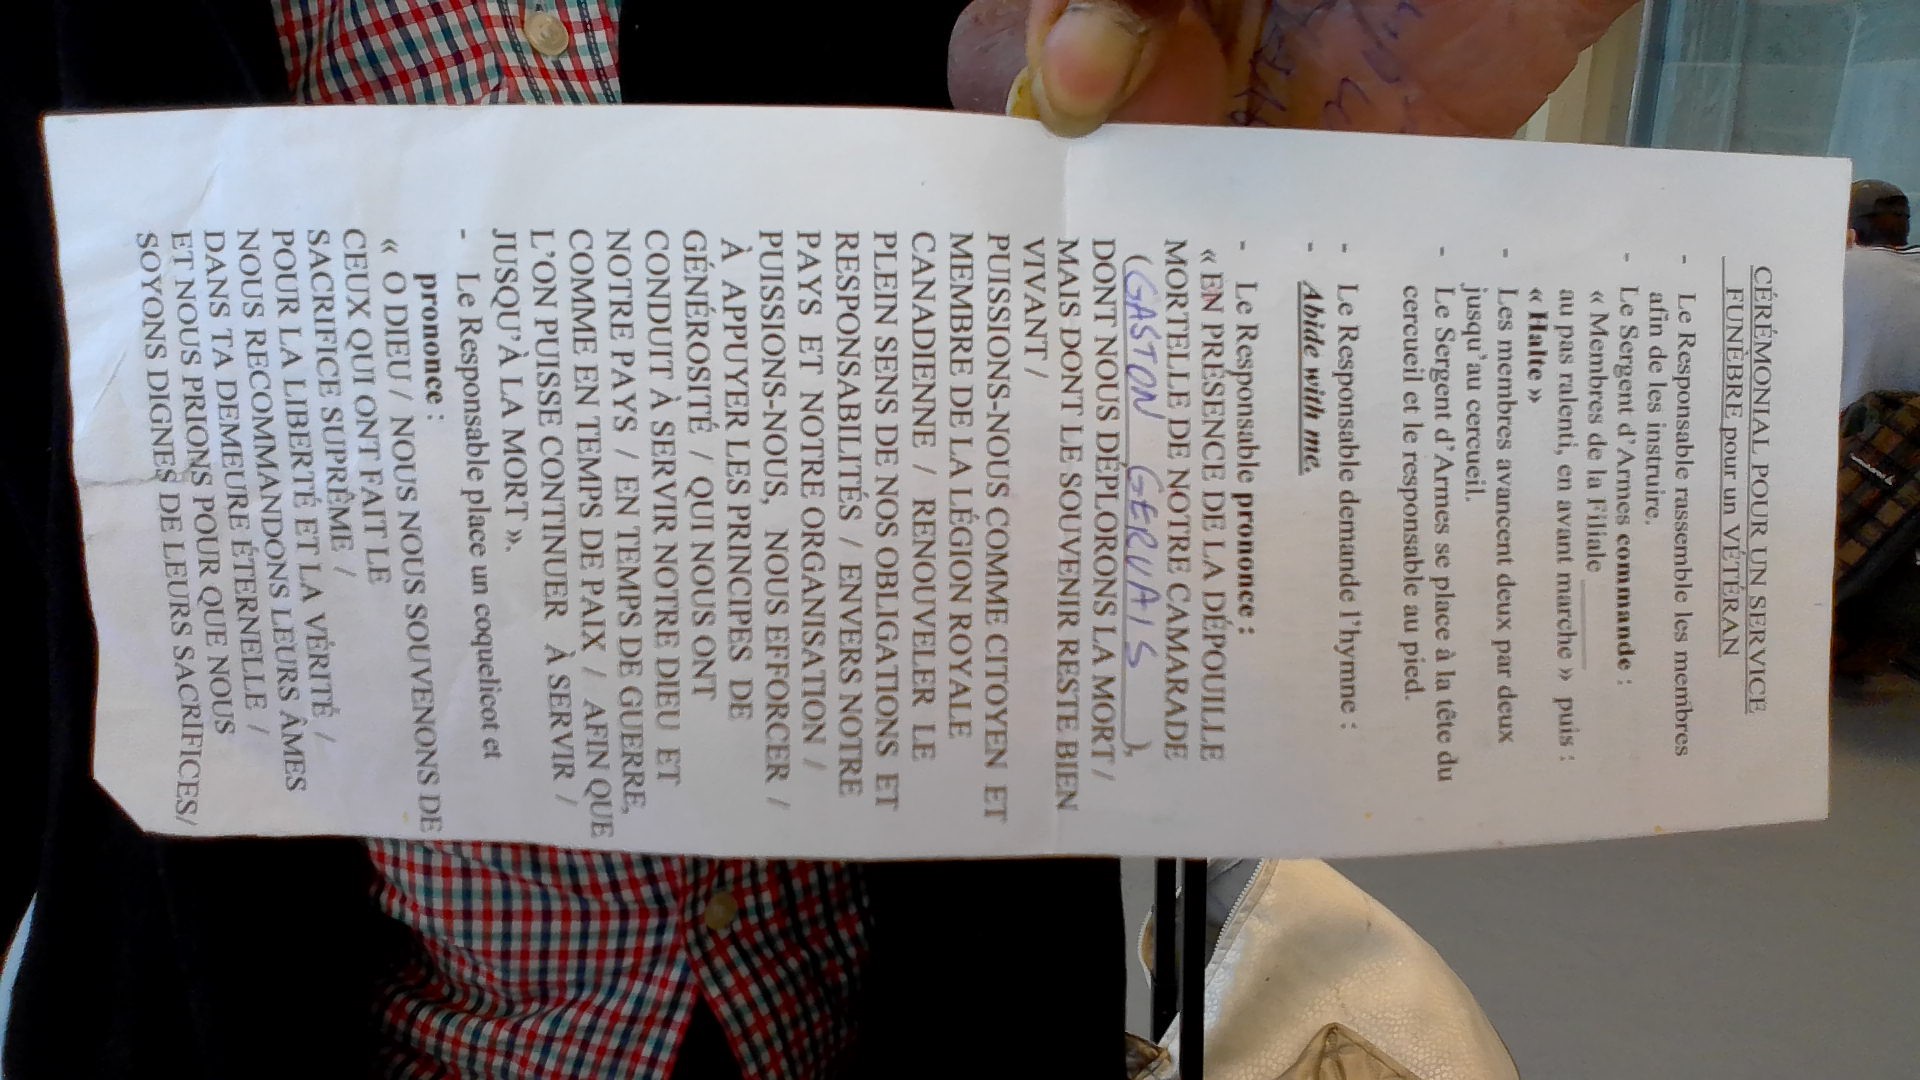 CÉRÉMONIAL POUR UN SERVICE
FUNÈBRE pour un VÉTÉRAN
- Le Responsable rassemble les membres
afin de les instruire.
- Le Sergent d'Armes commande :
« Membres de la Filiale ______
au pas ralenti, en avant marche » puis :
« Halte »
- Les membres avancent deux par deux
jusqu'au cercueil.
- Le Sergent d'Armes se place à la tête du
cercueil et le responsable au pied.
- Le Responsable demande l'hymne :
- Abide with me.
- Le Responsable prononce :
« EN PRÉSENCE DE LA DÉPOUILLE
MORTELLE DE NOTRE CAMARADE
(GASTON GERVAIS),
DONT NOUS DÉPLORONS LA MORT /
MAIS DONT LE SOUVENIR RESTE BIEN
VIVANT /
PUISSIONS-NOUS COMME CITOYEN ET
MEMBRE DE LA LÉGION ROYALE
CANADIENNE / RENOUVELER LE
PLEIN SENS DE NOS OBLIGATIONS ET
RESPONSABILITÉS / ENVERS NOTRE
PAYS ET NOTRE ORGANISATION /
PUISSIONS-NOUS, NOUS EFFORCER /
À APPUYER LES PRINCIPES DE
GÉNÉROSITÉ / QUI NOUS ONT
CONDUIT À SERVIR NOTRE DIEU ET
NOTRE PAYS / EN TEMPS DE GUERRE,
COMME EN TEMPS DE PAIX / AFIN QUE
L'ON PUISSE CONTINUER À SERVIR /
JUSQU'À LA MORT ».
- Le Responsable place un coquelicot et
prononce :
« O DIEU / NOUS NOUS SOUVENONS DE
CEUX QUI ONT FAIT LE
SACRIFICE SUPRÊME /
POUR LA LIBERTÉ ET LA VÉRITÉ /
NOUS RECOMMANDONS LEURS ÂMES
DANS TA DEMEURE ÉTERNELLE /
ET NOUS PRIONS POUR QUE NOUS
SOYONS DIGNES DE LEURS SACRIFICES/